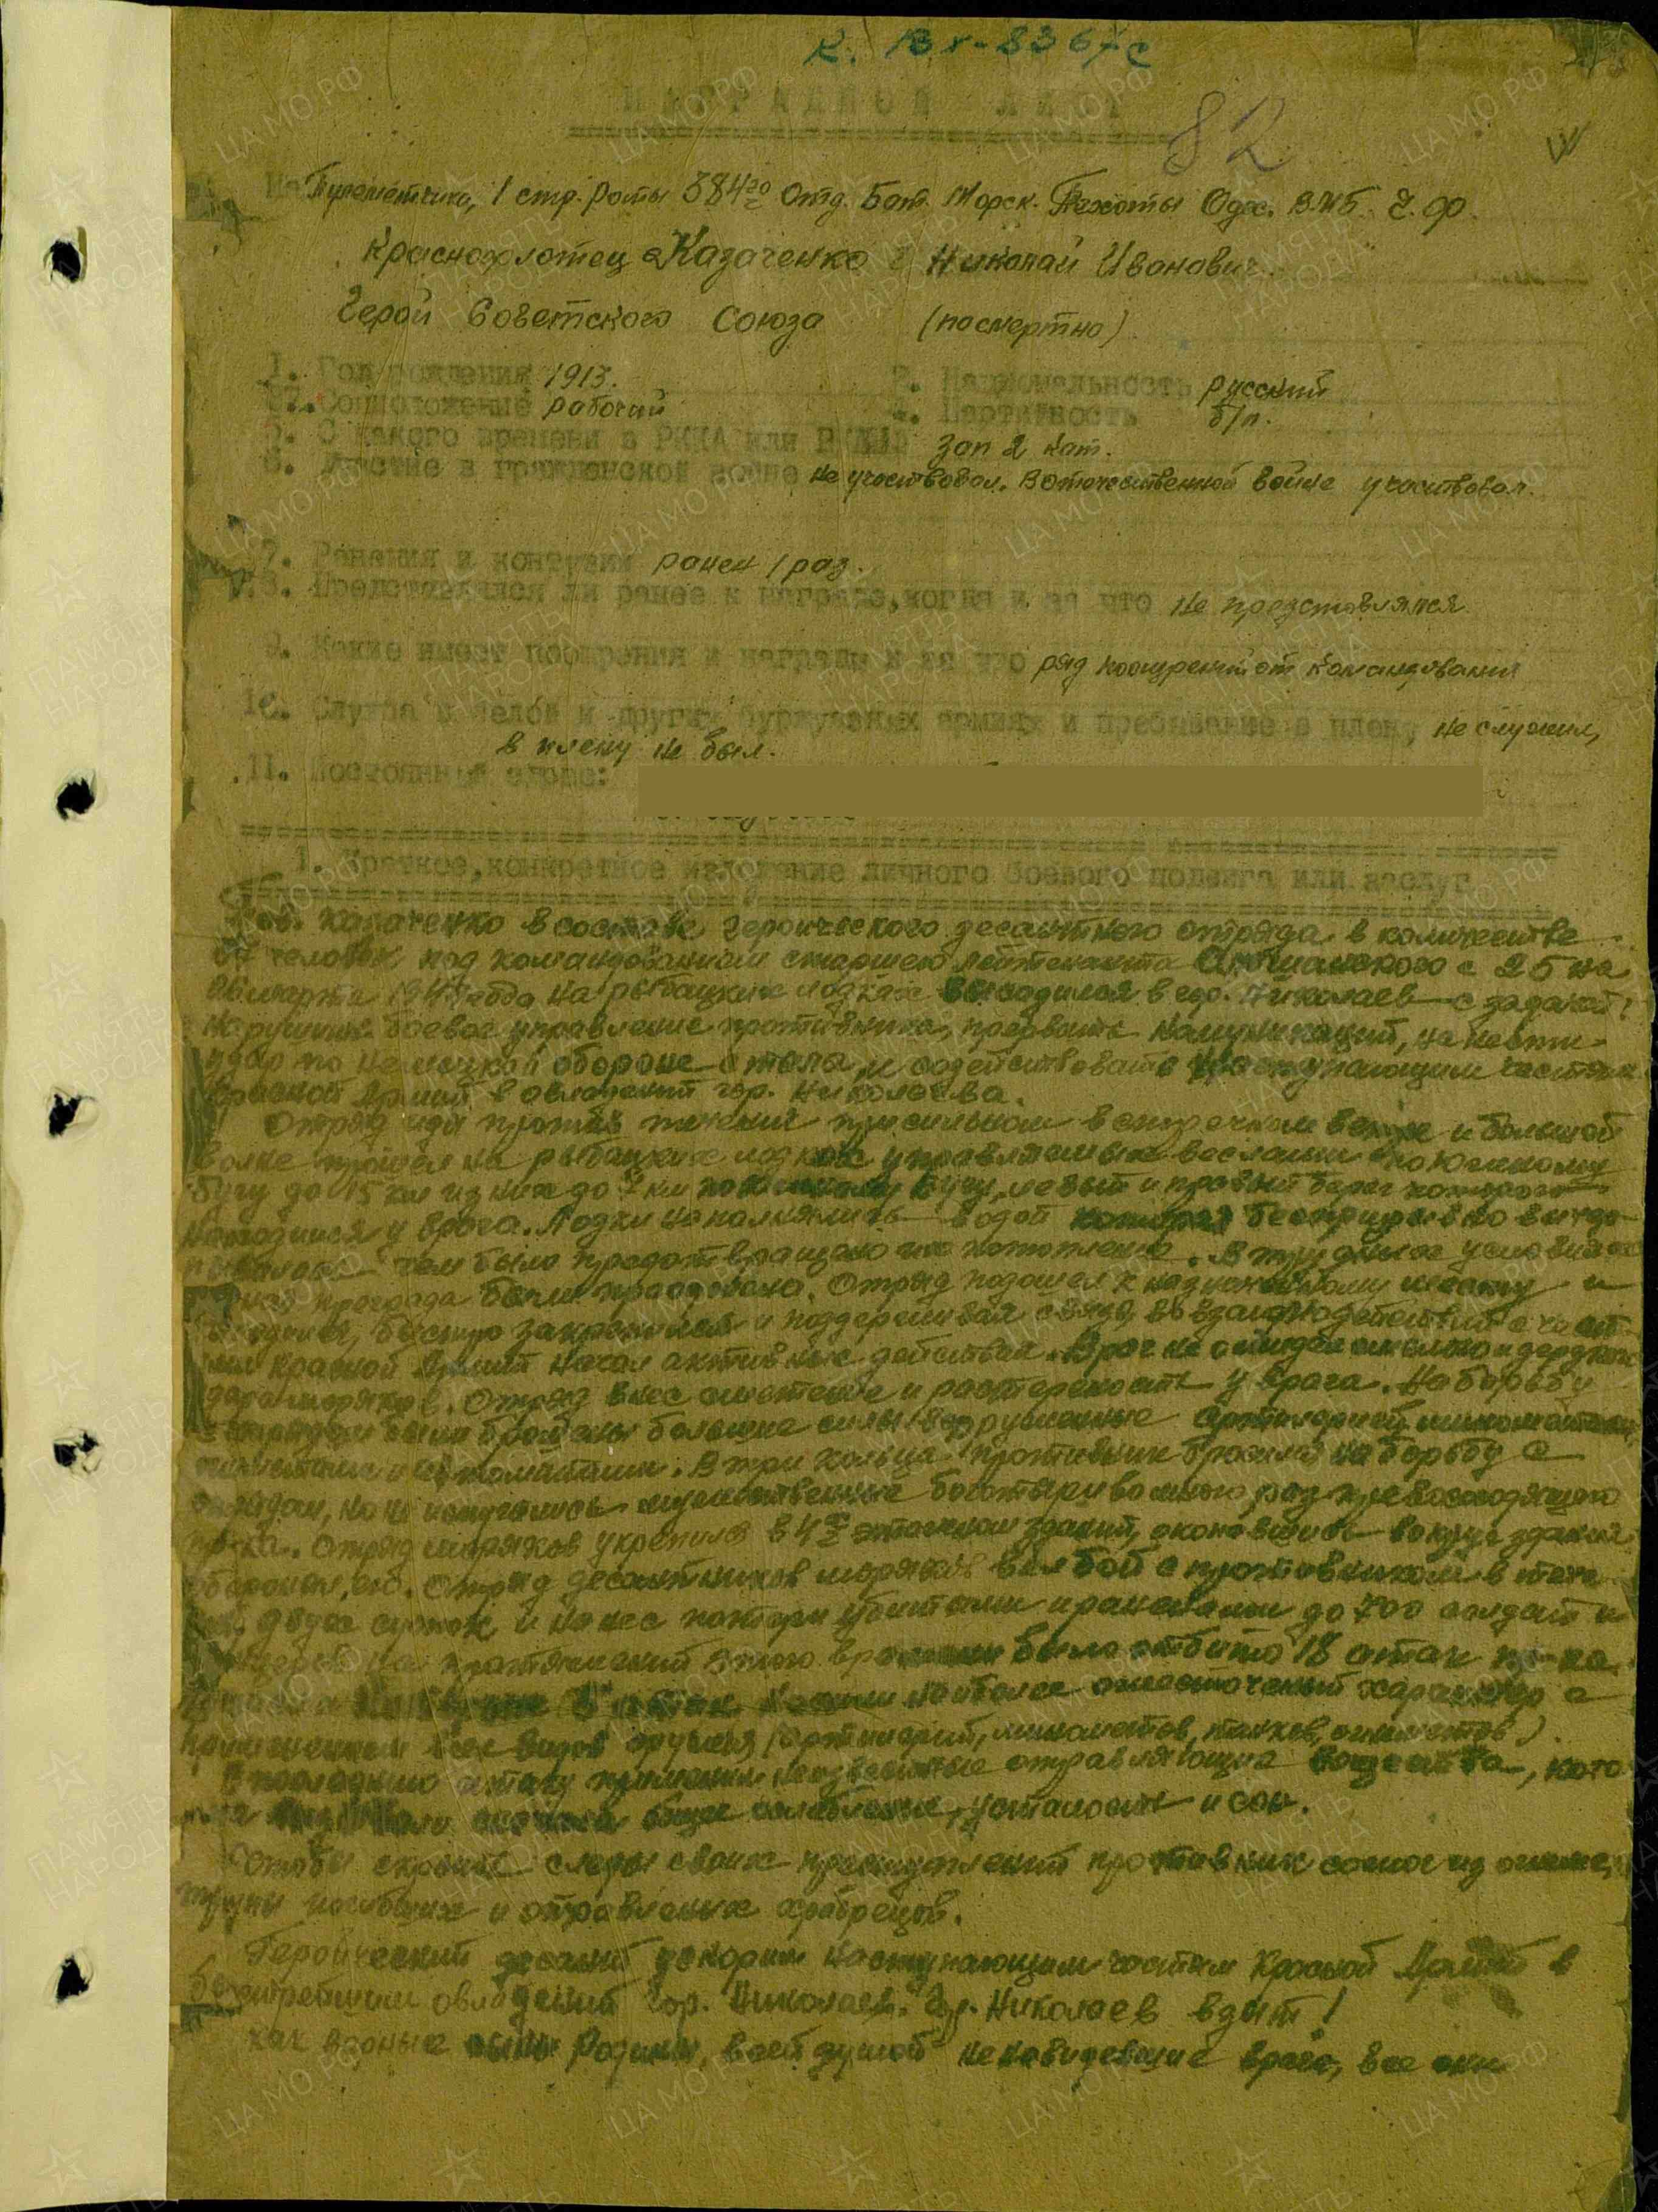 К. Вх-8367с
НАГРАДНОЙ ЛИСТ
82
На Пулеметчика, 1 стр. роты 384го Отд. Бат. Морск. Пехоты Одес. ВМБ Ч.Ф.
Краснофлотец Казаченко Николай Иванович
Герой Советского Союза (посмертно)
1. Год рождения 1913. 2. Национальность русский
3. Соцположение рабочий 4. Партийность б/п.
5. С какого времени в РККА или РКВМФ зап 2 кат.
6. Участие в гражданской войне не участвовал. В отечественной войне участвовал.
7. Ранения и контузии ранен 1 раз.
8. Представлялся ли ранее к награде, когда и за что не представлялся.
9. Какие имеет поощрения и награды и за что ряд поощрений от командования
10. Служба в белой и других буржуазных армиях и пребывание в плену не служил,
в плену не был.
11. Постоянный адрес:
1. Краткое, конкретное изложение личного боевого подвига или заслуг
Тов. Казаченко в составе героического десантного отряда в количестве
человек под командованием старшего лейтенанта Ольшанского с 25 на
26 марта 1944 года на рыбацких лодках высадился в гор. Николаев с задачей:
нарушить боевое управление противника, прервать коммуникации, нанести
удар по немецкой обороне с тыла и содействовать наступающим частям
Красной Армии в овладении гор. Николаева.
Отряд идя против течения при сильном встречном ветре и большой
волне прошел на рыбацких лодках управляемых веслами по Южному
Бугу до 15 км из них до 7 км по Южному Бугу, левый и правый берег которого
находился у врага. Лодки наполнялись водой которая беспрерывно вычер-
пывалась тем было предотвращено их потопление. В трудных условиях
преграда была преодолена. Отряд подошел к назначенному месту и
быстро закрепился и поддерживая связь во взаимодействии с частя-
ми Красной Армии начал активные действия. Враг не ожидал смелого и дерзкого
удара моряков. Отряд внес смятение и растерянность у врага. На борьбу
с отрядом были брошены большие силы вооруженные артиллерией, минометами,
и автоматами. В три кольца противник бросился на борьбу с
отрядом, но не испугались мужественные богатыри во много раз превосходящего
пр-ка. Отряд моряков укрепился в 4х этажном здании, окопавшись вокруг здания
обороняя его. Отряд десантников моряков вел бой с противником в тече-
нии двух суток и нанес потери убитыми и ранеными до 700 солдат и
офицеров. На протяжении этого времени было отбито 18 атак пр-ка
атак носили наиболее ожесточенный характер с
применением всех видов оружия (артиллерии, минометов, танков, огнеметов).
В последнюю атаку применил неизвестные отравляющие вещества, кото-
рые вызывали сначала общее ослабление, усталость и сон.
Чтобы скрыть следы своих преступлений противник сжег из огнемета
трупы погибших и отравленых храбрецов.
Героический десант ускорил наступающим частям Красной Армии в
быстрейшем овладении гор. Николаев. Гор. Николаев взят!
Как верные сыны Родины, всей душой ненавидевшие врага, все они